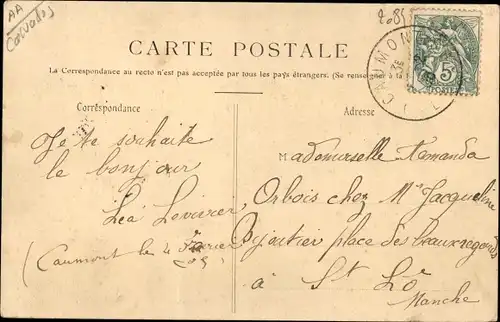 AA
Calvados
CARTE POSTALE
La Correspondance au recto n'est pas acceptée par tous les pays étrangers. (Se renseigner
Correspondance
Adresse
CAUMONT
5
Je te souhaite
le bonjour
Léa
(Caumont le 4
Mademoiselle
Orbois chez Mr Jacqueline
Bijoutier place des beaux regards
à St Lo
Manche